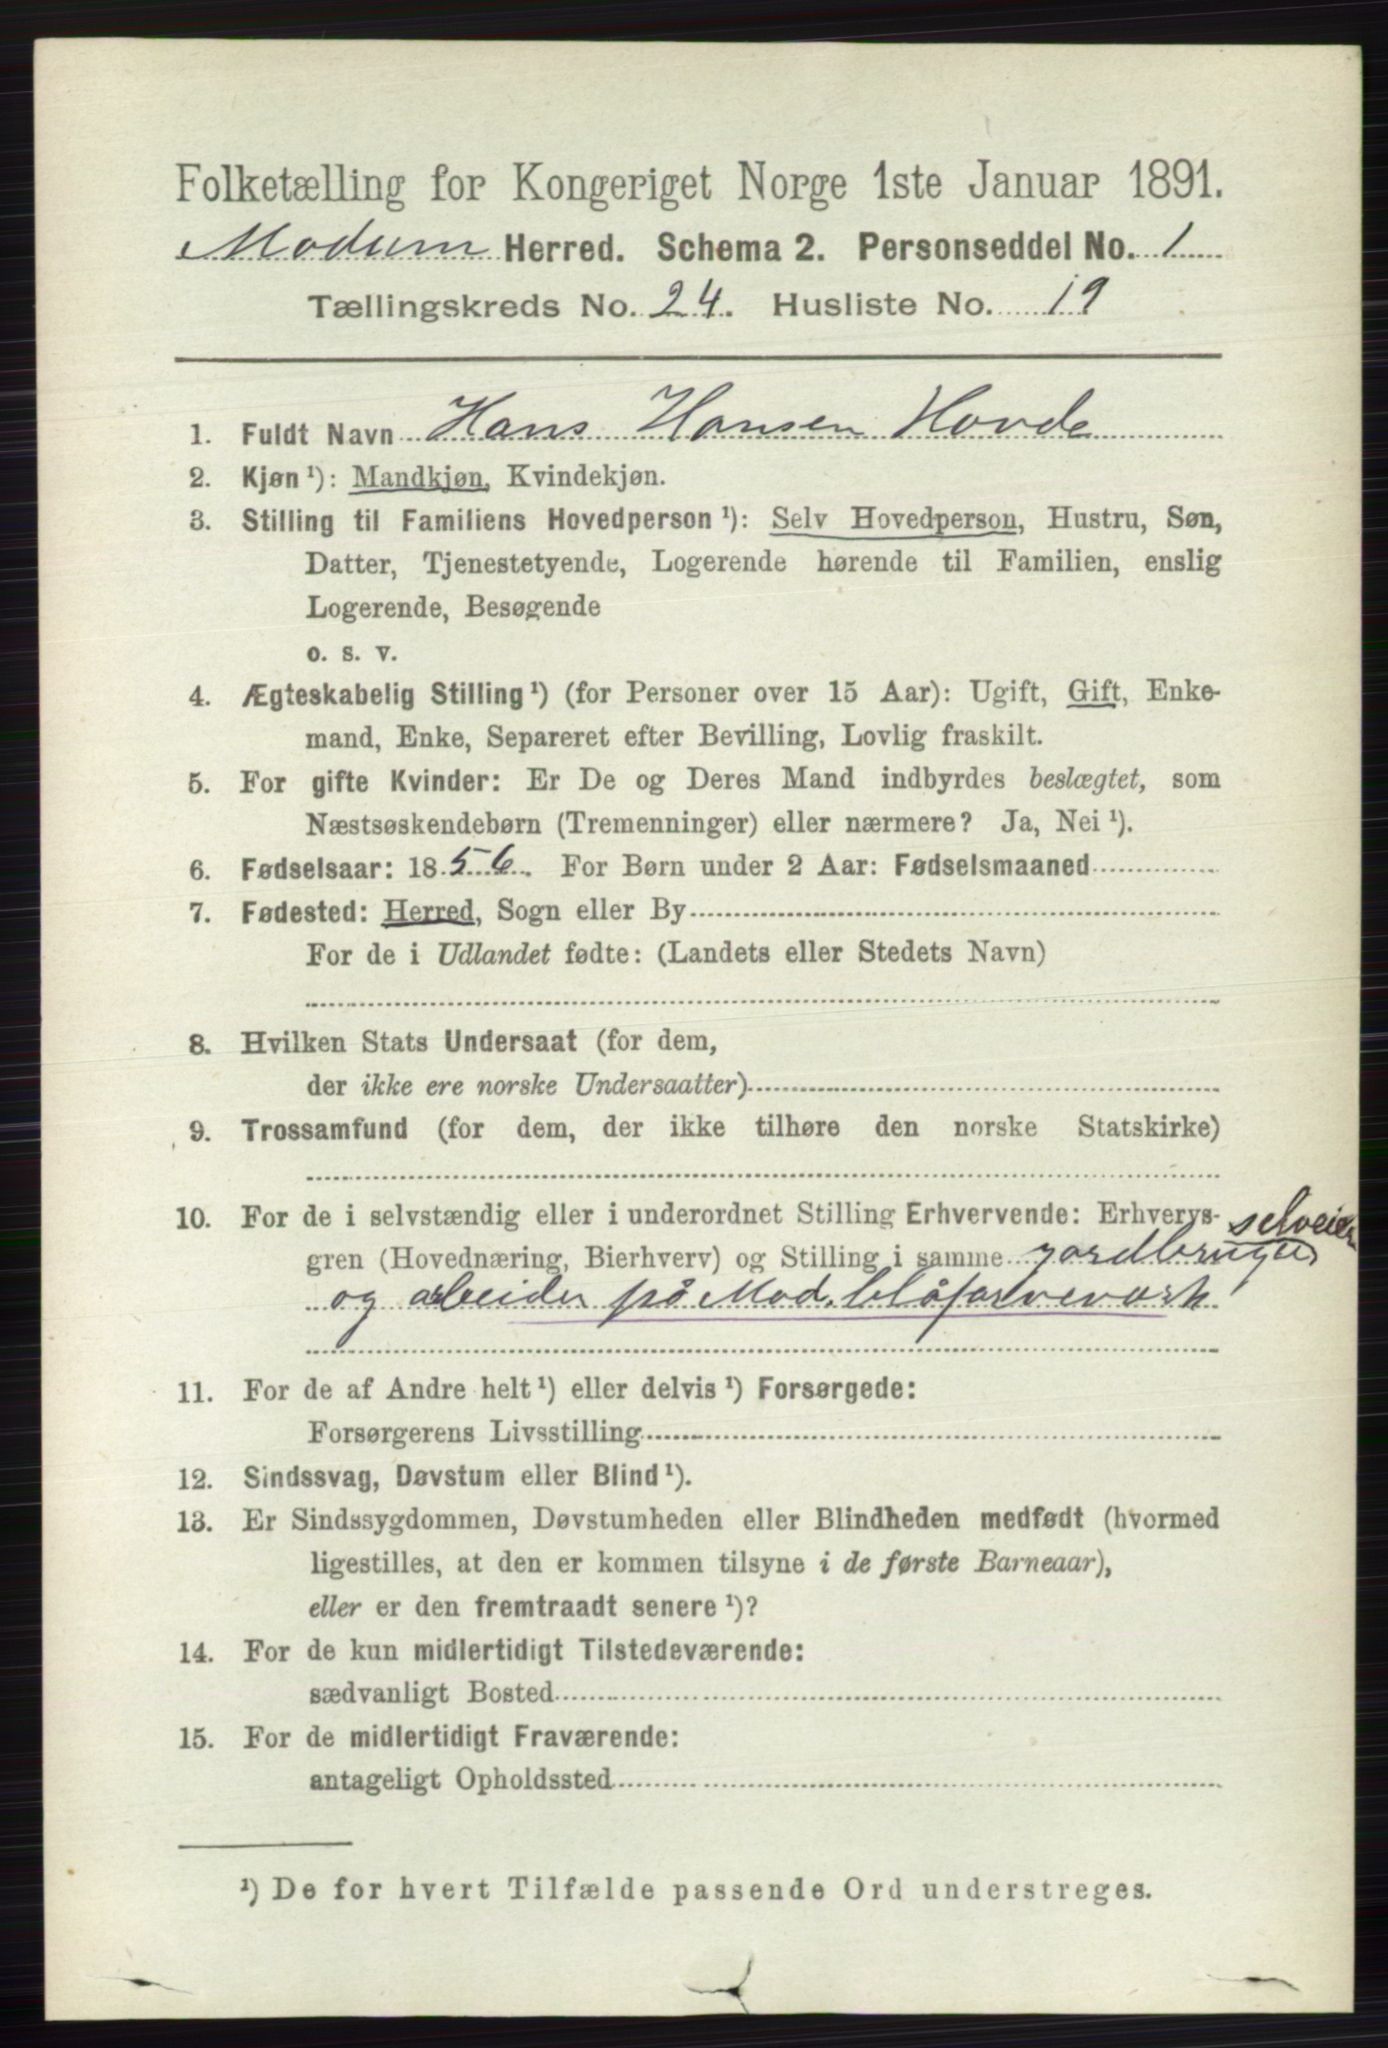 Folketælling for Kongeriget Norge 1ste Januar 1891.
Modum Herred. Schema 2. Personseddel No. 1
Tællingskreds No. 24. Husliste No. 19
1. Fuldt Navn Hans Hansen Hovde
2. Kjøn¹): Mandkjøn, Kvindekjøn.
3. Stilling til Familiens Hovedperson¹): Selv Hovedperson, Hustru, Søn,
Datter, Tjenestetyende, Logerende hørende til Familien, enslig
Logerende, Besøgende
o. s. v.
4. Ægteskabelig Stilling¹) (for Personer over 15 Aar): Ugift, Gift, Enke-
mand, Enke, Separeret efter Bevilling, Lovlig fraskilt.
5. For gifte Kvinder: Er De og Deres Mand indbyrdes beslægtet, som
Næstsøskendebørn (Tremenninger) eller nærmere? Ja, Nei¹).
6. Fødselsaar: 1856. For Børn under 2 Aar: Fødselsmaaned
7. Fødested: Herred, Sogn eller By
For de i Udlandet fødte: (Landets eller Stedets Navn)
8. Hvilken Stats Undersaat (for dem,
der ikke ere norske Undersaatter)
9. Trossamfund (for dem, der ikke tilhøre den norske Statskirke)
10. For de i selvstændig eller i underordnet Stilling Erhvervende: Erhvervs-
selveier
gren (Hovednæring, Bierhverv) og Stilling i samme gardbruger
og arbeider på Mod. blåfarveværk
11. For de af Andre helt¹) eller delvis¹) Forsørgede:
Forsørgerens Livsstilling
12. Sindssvag, Døvstum eller Blind¹).
13. Er Sindssygdommen, Døvstumheden eller Blindheden medfødt (hvormed
ligestilles, at den er kommen tilsyne i de første Barneaar),
eller er den fremtraadt senere¹)?
14. For de kun midlertidigt Tilstedeværende:
sædvanligt Bosted
15. For de midlertidigt Fraværende:
antageligt Opholdssted
¹) De for hvert Tilfælde passende Ord understreges.